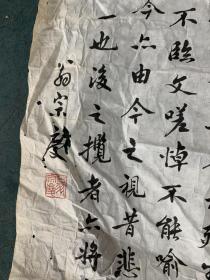 不臨文嗟悼不能喻
今亦由今之視昔悲
一也後之攬者亦將
翁宗慶